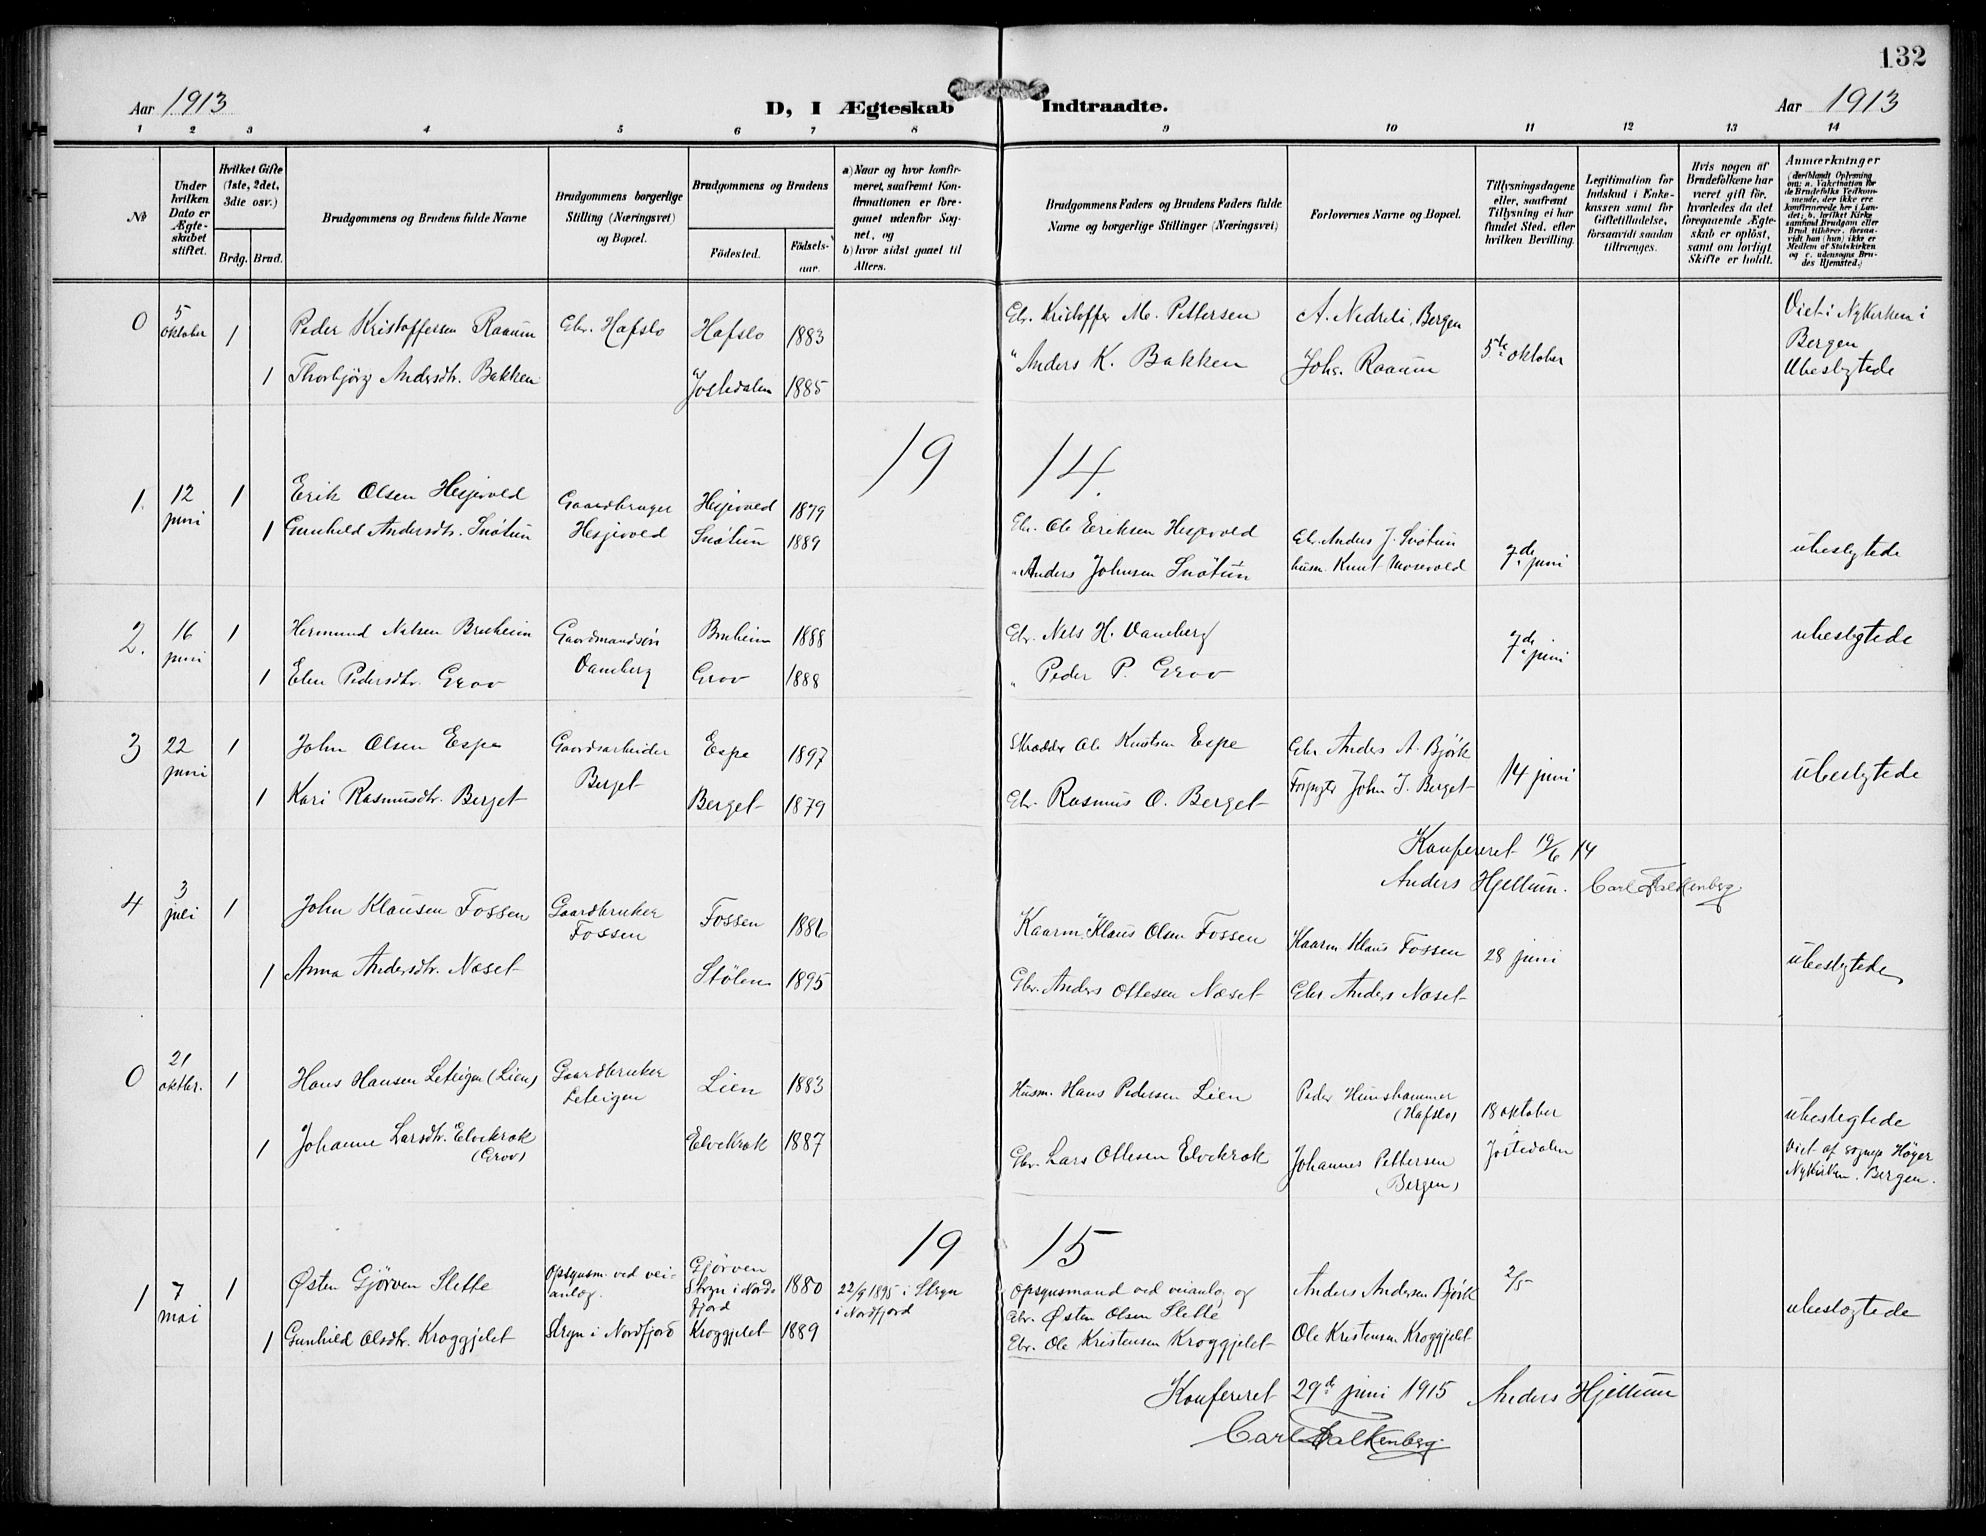 132
Aar 1913 D, I Ægteskab Indtraadte. Aar 1913
1 2 3 4 5 6 7 8 9 10 11 12 13 14
No
Under hvilken Dato er Ægteskabet stiftet.
Hvilket Gifte (1ste, 2det, 3die osv.)
Brdg. Brud.
Brudgommens og Brudens fulde Navne
Brudgommens borgerlige Stilling (Næringsvei) og Bopæl.
Brudgommens og Brudens
Fødested. Fødselsaar.
a) Naar og hvor konfirmeret, saafremt Konfirmationen er foregaaet udenfor Sognet, og
b) hvor sidst gaaet til Alters.
Brudgommens Faders og Brudens Faders fulde Navne og borgerlige Stillinger (Næringsvei)
Forlovernes Navne og Bopæl.
Tillysningsdagene eller, saafremt Tillysning ei har fundet Sted, efter hvilken Bevilling.
Legitimation for Indskud i Enkekassen samt for Giftetilladelse, forsaavidt saadan tiltrænges.
Hvis nogen af Brudefolkene har været gift før, hvorledes da det foregaaende Ægteskab er opløst, samt om lovligt Skifte er holdt.
Anmærkninger
(deriblandt Oplysning om: a. Vakcination for de Brudefolks Vedkommende, der ikke ere konfirmerede her i Landet; b. hvilket Kirkesamfund Brudgom eller Brud tilhører, forsaavidt han (hun) ikke er Medlem af Statskirken og c. udensogns Brudes Hjemsted.)
0 5 oktober 1 Peder Kristoffersen Raaum Gbr. Hafslo Hafslo 1883 Gbr. Kristoffer M. Pettersen A. Nedreli, Bergen 5te oktober Viet i Nykirken i Bergen
1 Thorbjørg Andersdtr. Bakken Jostedalen 1885 " Anders K. Bakken Johs. Raaum Ubeslegtede
19 14.
1. 12 juni 1 Erik Olsen Hesjevold Gaardbruger Hesjevold Hesjevold 1879 Gbr. Ole Eriksen Hesjevold Gbr. Anders J. Snøtun 7de juni ubeslegtede
1 Gunhild Andersdtr. Snøtun Snøtun 1889 " Anders Johnsen Snøtun husm. Knut Mosevold
2. 16 juni 1 Hermund Nelsen Bruheim Gaardmandssøn Vanberg Bruheim 1888 Gbr. Nels H. Vanberg 7de juni ubeslegtede
1 Elen Pedersdtr. Grov Grov 1888 " Peder P. Grov
3 22 juni 1 John Olsen Espe Gaardsarbeider Berget Espe 1897 Skrædder Ole Knutsen Espe Gbr Anders A. Bjørk 14 juni ubeslegtede
1 Kari Rasmusdtr. Berget Berget 1879 Gbr. Rasmus O. Berget Forpagter John J. Berget
Konfereret 19/6 14
Anders Hjellum. Carl Falkenberg
4 3 juli 1 John Klausen Fossen Gaardbruker Fossen Fossen 1886 Kaarm. Klaus Olsen Fossen Kaarm Klaus Fossen 28 juni ubeslegtede
1 Anna Andersdtr. Næset Stølen 1895 Gbr. Anders Ottesen Næset Gbr Anders Næset
0 21 oktbr. 1 Hans Hansen Leteigen (Lien) Gaardbruker Leteigen Lien 1883 Husm. Hans Pedersen Lien Peder Hunshammer (Hafslo) 18 oktober Jostedalen ubeslegtede
1 Johanne Larsdtr. Elvekrok (Grov) Elvekrok 1887 Gbr. Lars Ottesen Elvekrok Johannes Pettersen (Bergen) Viet af sognep Høyer Nykirken. Bergen.
19 15
1 7 mai 1 Østen Gjørven Slette Opsynsm. ved veianlæg. Gjørven Stryn i Nordfjord 1880 22/9 1895 i Stryn i Nordfjord Opsynsmand ved veianlæg og Gbr. Østen Olsen Slette Anders Andersen Bjørk 2/5 ubeslegtede
1 Gunhild Olsdtr. Kroggjelet Stryn i Nordfjord Kroggjelet 1889 Gbr. Ole Kristensen Kroggjelet Ole Kristensen Kroggjelet
Konfereret 29de juni 1915 Anders Hjellum
Carl Falkenberg